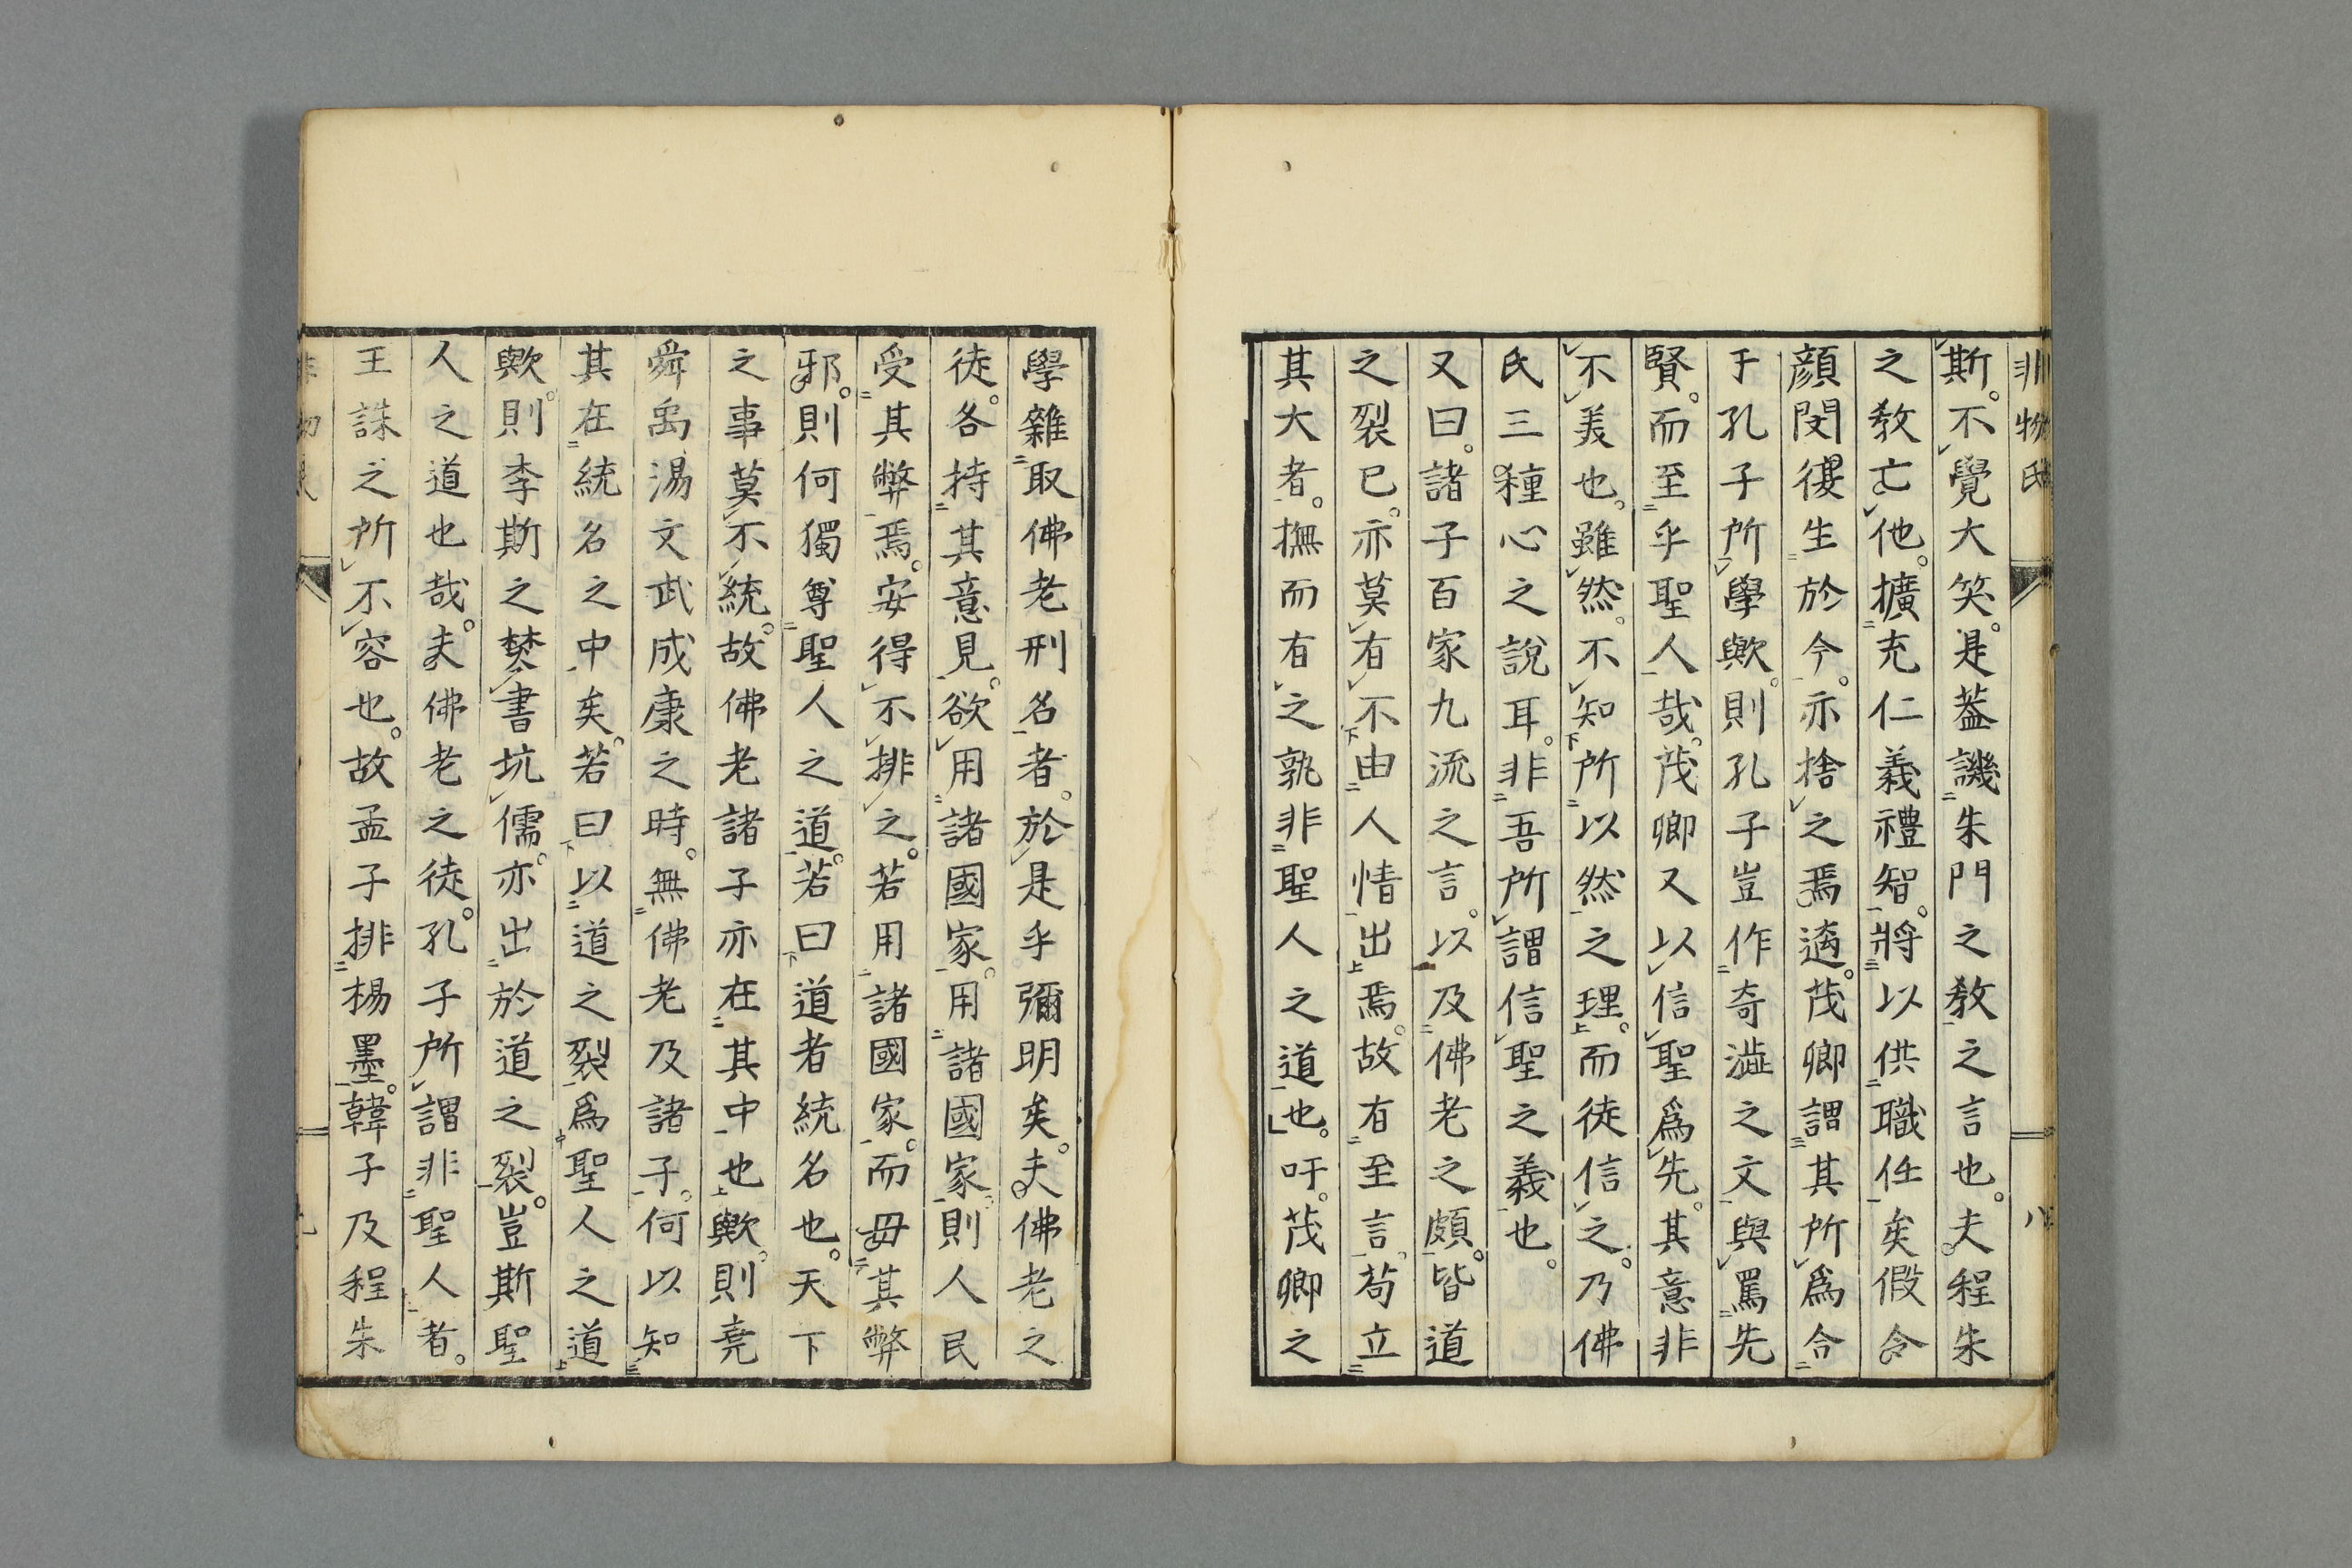 非物氏
八
斯。不覺大笑。是蓋譏朱門之教之言也。夫程朱
之教亡他。擴充仁義禮智。將以供職任矣假令
顔閔復生於今。亦捨之焉適。茂卿謂其所爲合
于孔子所學歟。則孔子豈作奇澁之文與罵先
賢。而至乎聖人哉。茂卿又以信聖爲先。其意非
不美也。雖然。不知所以然之理。而徒信之。乃佛
氏三種心之說耳。非吾所謂信聖之義也。
又曰。諸子百家九流之言。以及佛老之頗。皆道
之裂已。亦莫有不由人情出焉。故有至言。苟立
其大者。撫而有之孰非聖人之道也。吁。茂卿之
學雜取佛老刑名者。於是乎彌明矣。夫佛老之
徒。各持其意見。欲用諸國家。用諸國家則人民
受其弊焉。安得不排之。若用諸國家。而毋其弊
邪。則何獨尊聖人之道。若曰道者統名也。天下
之事莫不統。故佛老諸子亦在其中也歟。則堯
舜禹湯文武成康之時。無佛老及諸子。何以知
其在統名之中矣。若曰以道之裂爲聖人之道
歟。則李斯之焚書坑儒。亦出於道之裂。豈斯聖
人之道也哉。夫佛老之徒。孔子所謂非聖人者。
王誅之所不容也。故孟子排楊墨。韓子及程朱